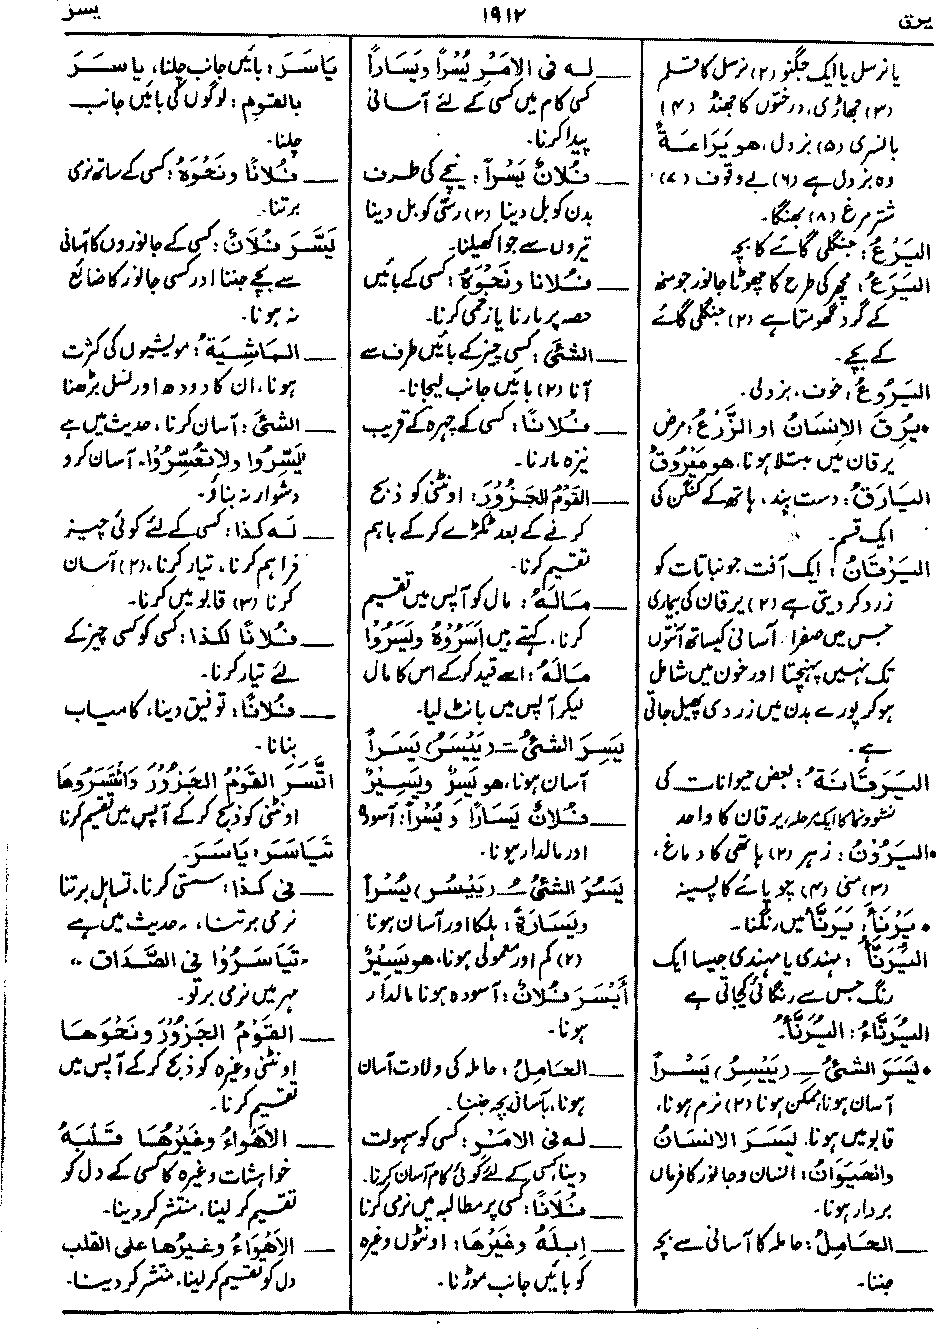 یرق
۱۹۱۲
یسر
یا نرسل یا ایک جگنو (۲) نرسل کا قلم
(۳) جھاڑی، درختوں کا جھنڈ (۴)
بانسری (۵) بزدل، هو يَرَاعَةٌ
وہ بزدل ہے (۶) بے وقوف (۷)
شتر مرغ (۸) بھنگا۔
اليَرْعُ: جنگلی گائے کا بچہ
اليَرَعُ: مچھر کی طرح کا چھوٹا جانور جو منھ
کے گرد گھومتا ہے (۲) جنگلی گائے
کے بچے۔
اليَرُوعُ: خوف، بزدلی۔
•يُرِقَ الإنسانُ او الزَّرْعُ: مرض
یرقان میں مبتلا ہونا، هو مَيْرُوقٌ
اليَارَقُ: دست بند، ہاتھ کے کنگن کی
ایک قسم۔
اليَرَقَانُ: ایک آفت جو نباتات کو
زرد کر دیتی ہے (۲) یرقان کی بیماری
جس میں صفرا آسانی کیساتھ آنتوں
تک نہیں پہنچتا اور خون میں شامل
ہوکر پورے بدن میں زردی پھیل جاتی
ہے۔
اليَرَقَانَةُ: بعض حیوانات کی
نشوونما کا ایک مرحلہ، یرقان کا واحد
•اليَرُوْنُ: زہر (۲) ہاتھی کا دماغ،
(۳) منی (۴) چوپائے کا پسینہ
•يَرْنَأَ: يَرَنَّأ میں رنگنا۔
اليُرَنَّأُ: مہندی یا مہندی جیسا ایک
رنگ جس سے رنگائی کیجاتی ہے
اليُرَنَّاءُ: اليُرَنَّأُ۔
•يَسَرَ الشئُ ــِـ (يَيْسِرُ) يَسْراً
آسان ہونا، ممکن ہونا (۲) نرم ہونا،
قابو میں ہونا، يَسَرَ الانسانُ
والحَيَوانُ: انسان و جانور کا فرماں
بردار ہونا۔
ـــ الحَامِلُ: حاملہ کا آسانی سے بچہ
جننا۔
ـــ له فى الامْرِ يُسْراً و يَسَاراً
کسی کام میں کسی کے لئے آسانی
پیدا کرنا۔
ـــ فُلانٌ يَسْراً: نیچے کی طرف
بدن کو بل دینا (۲) رسّی کو بل دینا
تیروں سے جوا کھیلنا۔
ـــ فُلانا ونَحْوَهُ: کسی کے بائیں
حصہ پر مارنا یا زخمی کرنا۔
ـــ الشئَ: کسی چیز کے بائیں طرف سے
آنا (۲) بائیں جانب لیجانا۔
ـــ فُلاناً: کسی کے چہرہ کے قریب
نیزہ مارنا۔
ـــ القَوْمُ الجَزُوْرَ: اونٹنی کو ذبح
کرنے کے بعد ٹکڑے کر کے باہم
تقسیم کرنا۔
ـــ مَالَهُ: مال کو آپس میں تقسیم
کرنا، کہتے ہیں أَسَرُوْهُ ويَسَرُوْا
مَالَهُ: اسے قید کرکے اس کا مال
لیکر آپس میں بانٹ لیا۔
يَسِرَ الشئُ ــَـ (يَيْسَرُ) يَسَراً
آسان ہونا، هو يَسِرٌ و يَسِيْرٌ
ـــ فُلانٌ يَسَاراً و يُسْراً: آسودہ
اور مالدار ہونا۔
يَسُرَ الشئُ ــُـ (يَيْسُرُ) يُسْراً
ويَسَارَةً: ہلکا اور آسان ہونا
(۲) کم اور معمولی ہونا، هو يَسِيْرٌ
أَيْسَرَ فُلانٌ: آسودہ ہونا مالدار
ہونا۔
ـــ الحَامِلُ: حاملہ کی ولادت آسان
ہونا، بآسانی بچہ جننا۔
ـــ له فى الامْرِ: کسی کو سہولت
دینا، کسی کے لئے کوئی کام آسان کرنا۔
ـــ فُلاناً: کسی پر مطالبہ میں نرمی کرنا
ـــ اِبِلَهُ وغَيْرَها: اونٹوں وغیرہ
کو بائیں جانب موڑنا۔
يَاسَرَ: بائیں جانب چلنا، ياسَرَ
بالقومِ: لوگوں کی بائیں جانب
چلنا۔
ـــ فُلانًا ونَحْوَهُ: کسی کے ساتھ نرمی
برتنا۔
يَسَّرَ فُلانٌ: کسی کے جانوروں کا آسانی
سے بچے جننا اور کسی جانور کا ضائع
نہ ہونا۔
ـــ المَاشِيَةُ: مویشیوں کی کثرت
ہونا، ان کا دودھ اور نسل بڑھنا
ـــ الشئَ: آسان کرنا، حدیث میں ہے
يَسِّرُوا ولا تُعَسِّرُوْا، آسان کرو
دشوار نہ بناؤ۔
ـــ لَهُ كذا: کسی کے لئے کوئی چیز
فراہم کرنا، تیار کرنا، (۲) آسان
کرنا (۳) قابو میں کرنا۔
ـــ فُلانًا لكذا: کسی کو کسی چیز کے
لئے تیار کرنا۔
ـــ فُلانًا: توفیق دینا، کامیاب
بنانا۔
اتَّسَرَ القَوْمُ الجَزُوْرَ واتَّسَرُوها
اونٹنی کو ذبح کر کے آپس میں تقسیم کرنا
تَيَاسَرَ: يَاسَرَ۔
ـــ فى كذا: سستی کرنا، تساہل برتنا
نرمی برتنا، حدیث میں ہے
تَيَاسَرُوْا فى الصَّدَاق
مہر میں نرمی برتو۔
ـــ القَوْمُ الجَزُوْرَ ونَحْوَها
اونٹنی وغیرہ کو ذبح کرکے آپس میں
تقسیم کرنا۔
ـــ الاَهْواءُ وغيرُها قَلْبَهُ
خواہشات وغیرہ کا کسی کے دل کو
تقسیم کر لینا، منتشر کر دینا۔
ـــ الاَهْواءُ وغيرُها على القلب
دل کو تقسیم کر لینا، منتشر کر دینا۔